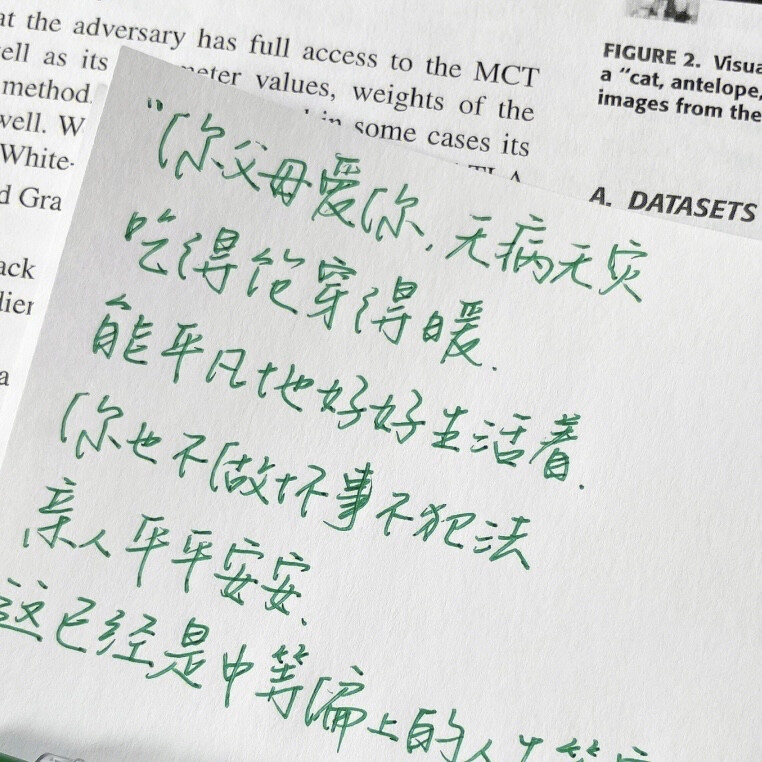 at the adversary has full access to the MCT
ell as its
meter values, weights of the
method.
well. W
in some cases its
White-
d Gra
ack
dier
a
FIGURE 2. Visua
a "cat, antelope,
images from the
A. DATASETS
"你父母爱你,无病无灾
吃得饱穿得暖.
能平凡地好好生活着.
你也不做坏事不犯法
亲人平平安安.
这已经是中等偏上的人